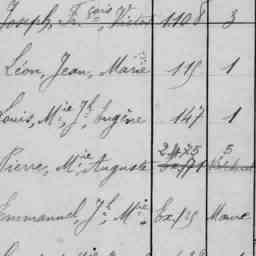 Joseph, Fçois, Victor 1108 3
Léon, Jean, Marie 115 1
Louis, Mie, Jh, Eugène 147 1
2475 5
Pierre, Mie, Auguste
Emmanuel, Jh, Mie, Ex. 15